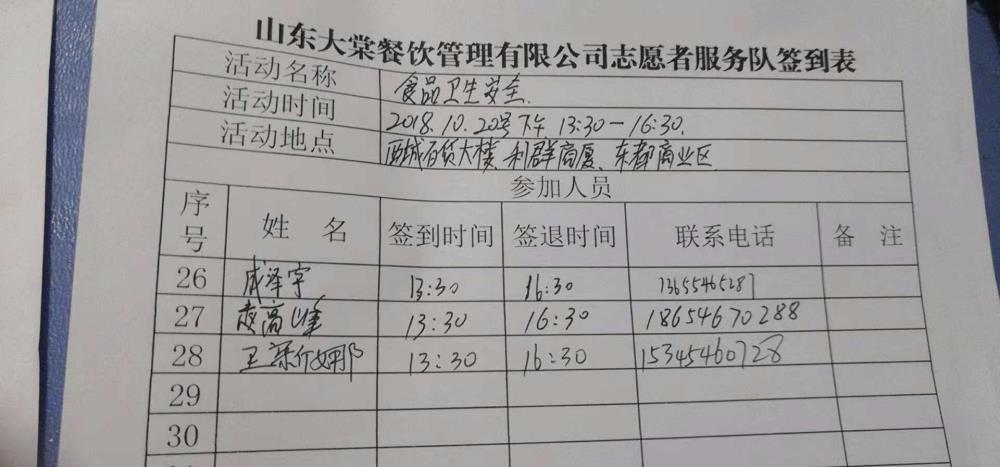 山东大棠餐饮管理有限公司志愿者服务队签到表
活动名称 食品卫生安全.
活动时间 2018.10.20号下午 13:30—16:30.
活动地点 西城百货大楼、利群商厦、东都商业区
参加人员
序号 姓 名 签到时间 签退时间 联系电话 备 注
26 成泽宇 13:30 16:30 13655465287
27 赵高峰 13:30 16:30 18654670288
28 王 娜 13:30 16:30 15345460728
29
30